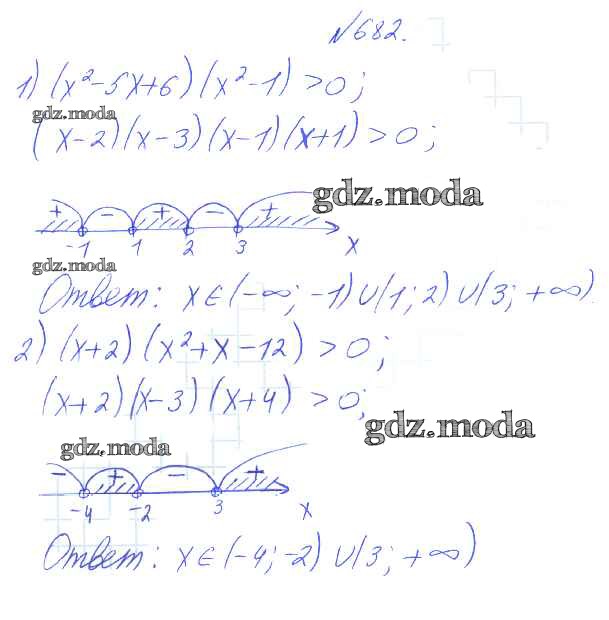 №682.
1) (x²-5x+6)(x²-1)>0;
gdz.moda
(x-2)(x-3)(x-1)(x+1)>0;
gdz.moda
+ - + - +
-1 1 2 3 x
gdz.moda
Ответ: x∈(-∞;-1)∪(1;2)∪(3;+∞)
2) (x+2)(x²+x-12)>0;
(x+2)(x-3)(x+4)>0;
gdz.moda
gdz.moda
- + - +
-4 -2 3 x
Ответ: x∈(-4;-2)∪(3;+∞)